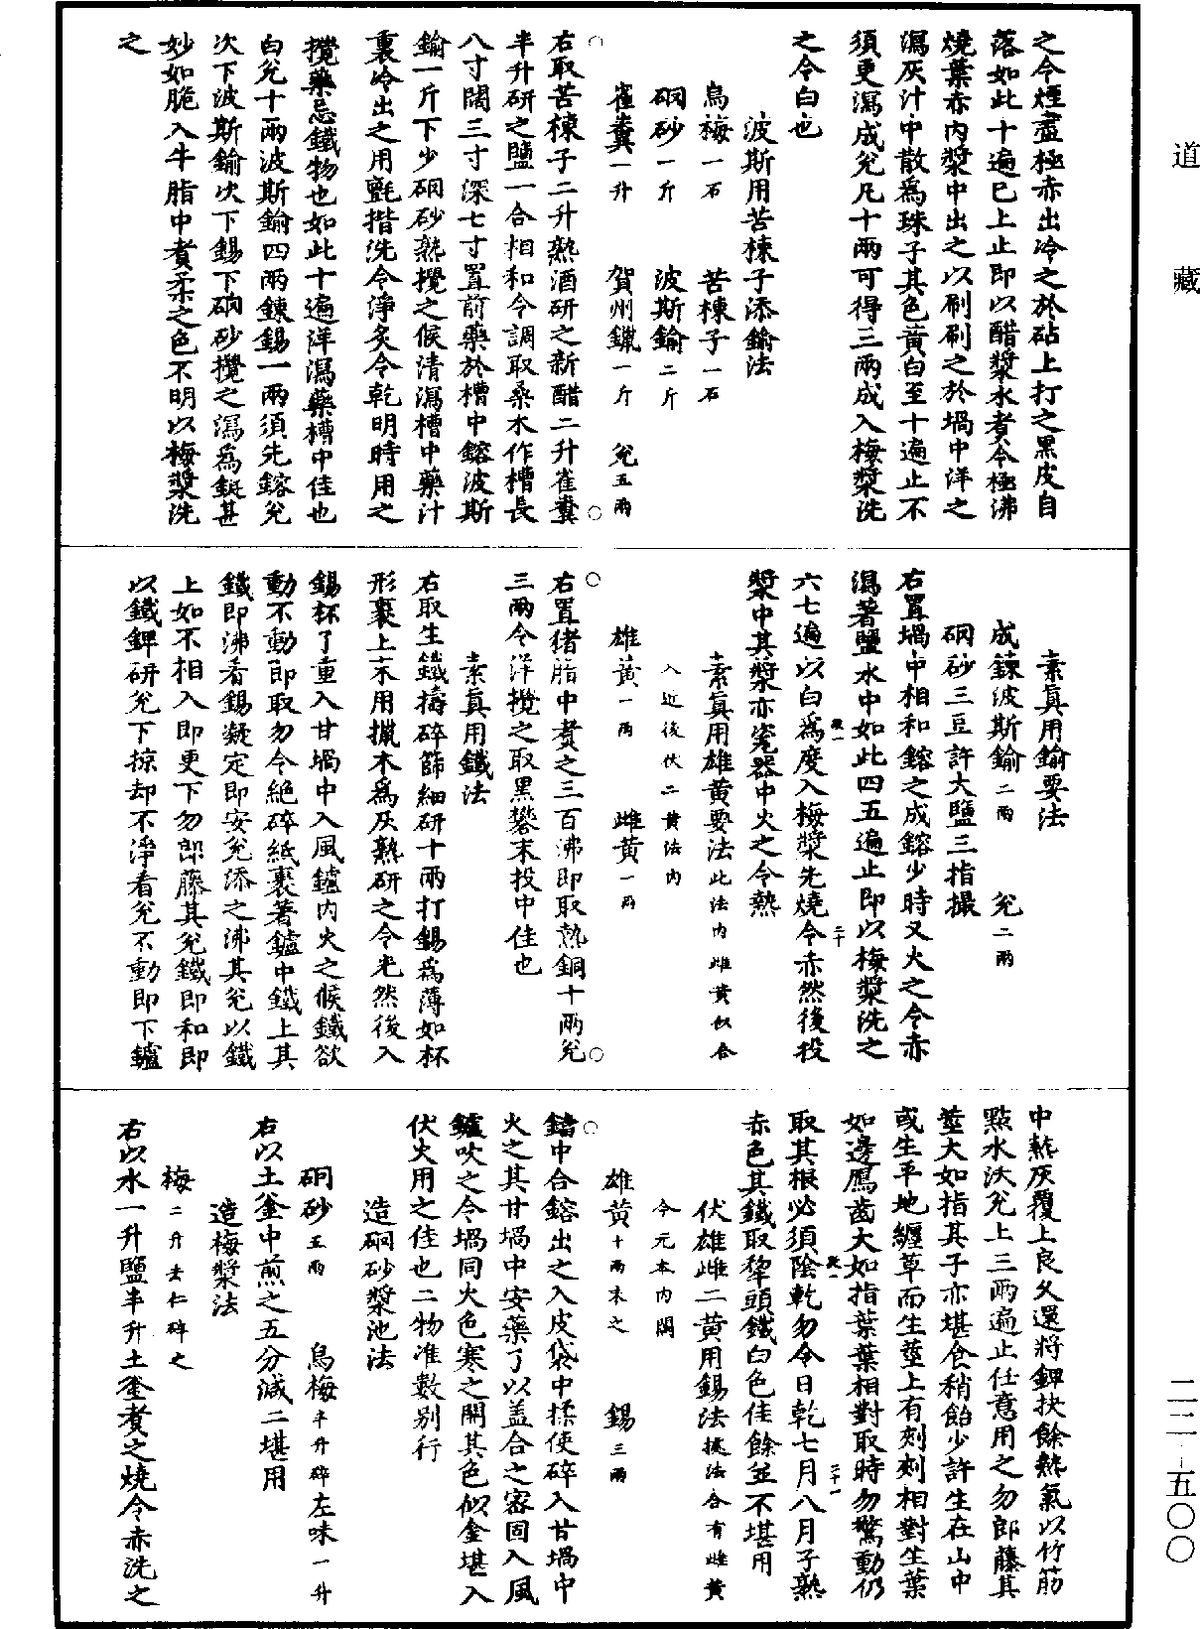 道藏
之令煙盡極赤出冷之於砧上打之黑皮自
落如此十遍已上止即以醋漿水煮令極沸
燒葉赤內漿中出之以刷刷之於堝中洋之
瀉灰汁中散為珠子其色黃白至十遍止不
須更瀉成兊凡十兩可得三兩成入梅漿洗
之令白也
波斯用苦楝子添鍮法
烏梅一石 苦楝子一石
硇砂一斤 波斯鍮二斤
雀糞一升 賀州鑞一斤 兊五兩
右取苦楝子二升熟酒研之新醋二升雀糞
半升研之鹽一合相和令調取桑木作槽長
八寸闊三寸深七寸置前藥於槽中鎔波斯
鍮一斤下少硇砂熟攪之候清瀉槽中藥汁
裏冷出之用氈揩洗令淨炙令乾明時用之
攪藥忌鐵物也如此十遍洋瀉藥槽中佳也
白兊十兩波斯鍮四兩鍊錫一兩須先鎔兊
次下波斯鍮次下錫下硇砂攪之瀉為鋌甚
妙如脆入牛脂中煮柔之色不明以梅漿洗
之
素真用鍮要法
成鍊波斯鍮二兩 兊二兩
硇砂三豆許大鹽三指撮
右置堝中相和鎔之成鎔少時又火之令赤
瀉著鹽水中如此四五遍止即以梅漿洗之
六七遍以白為度入梅漿先燒令赤然後投
漿中其漿亦瓷器中火之令熱
素真用雄黃要法此法內雌黃似合
入近後伏二黃法內
雄黃一兩 雌黃一兩
右置豬脂中煮之三百沸即取熟銅十兩兊
三兩令洋攪之取黑礬末投中佳也
素真用鐵法
右取生鐵擣碎篩細研十兩打錫為薄如杯
形裹上末用擸木為灰熟研之令光然後入
錫杯了重入甘堝中入風鑪內火之候鐵欲
動不動即取勿令絕碎紙裹著鑪中鐵上其
鐵即沸看錫凝定即安兊添之沸其兊以鐵
上如不相入即更下勿郎藤其兊鐵即和即
以鐵鎞研兊下掠却不淨看兊不動即下鑪
中熱灰覆上良久還將鎞抉餘熱氣以竹筋
點水沃兊上三兩遍止任意用之勿郎藤其
莖大如指其子亦堪食稍飴少許生在山中
或生平地纏草而生莖上有刻刻相對生葉
如邊鴈齒大如指葉葉相對取時勿驚動仍
取其根必須陰乾勿令日乾七月八月子熟
赤色其鐵取犂頭鐵白色佳餘並不堪用
伏雄雌二黃用錫法據法合有雌黃
今元本內闕
雄黃十兩末之 錫三兩
鐺中合鎔出之入皮袋中揉使碎入甘堝中
火之其甘堝中安藥了以盖合之密固入風
鑪吹之令堝同火色寒之開其色似金堪入
伏火用之佳也二物准數別行
造硇砂漿池法
硇砂五兩 烏梅半升碎左味一升
右以土釜中煎之五分減二堪用
造梅漿法
梅二升去仁碎之
右以水一升鹽半升土釜煮之燒令赤洗之
二二-五〇〇